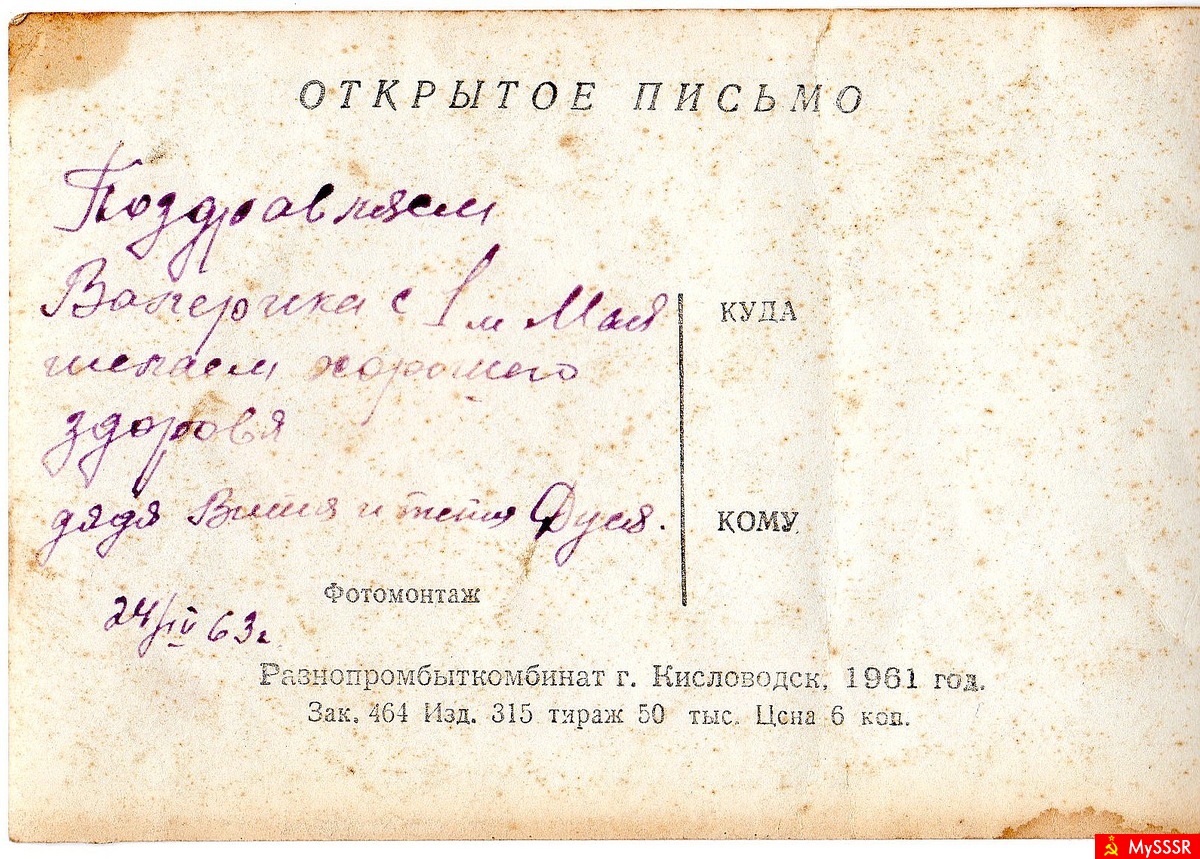 ОТКРЫТОЕ ПИСЬМО
Поздравляем
Валерика с 1м Мая
желаем хорошего
здоровя
дядя Витя и тетя Дуся.
24/IV 63г
КУДА
КОМУ
Фотомонтаж
Разнопромбыткомбинат г. Кисловодск, 1961 год.
Зак. 464 Изд. 315 тираж 50 тыс. Цена 6 коп.
MySSSR